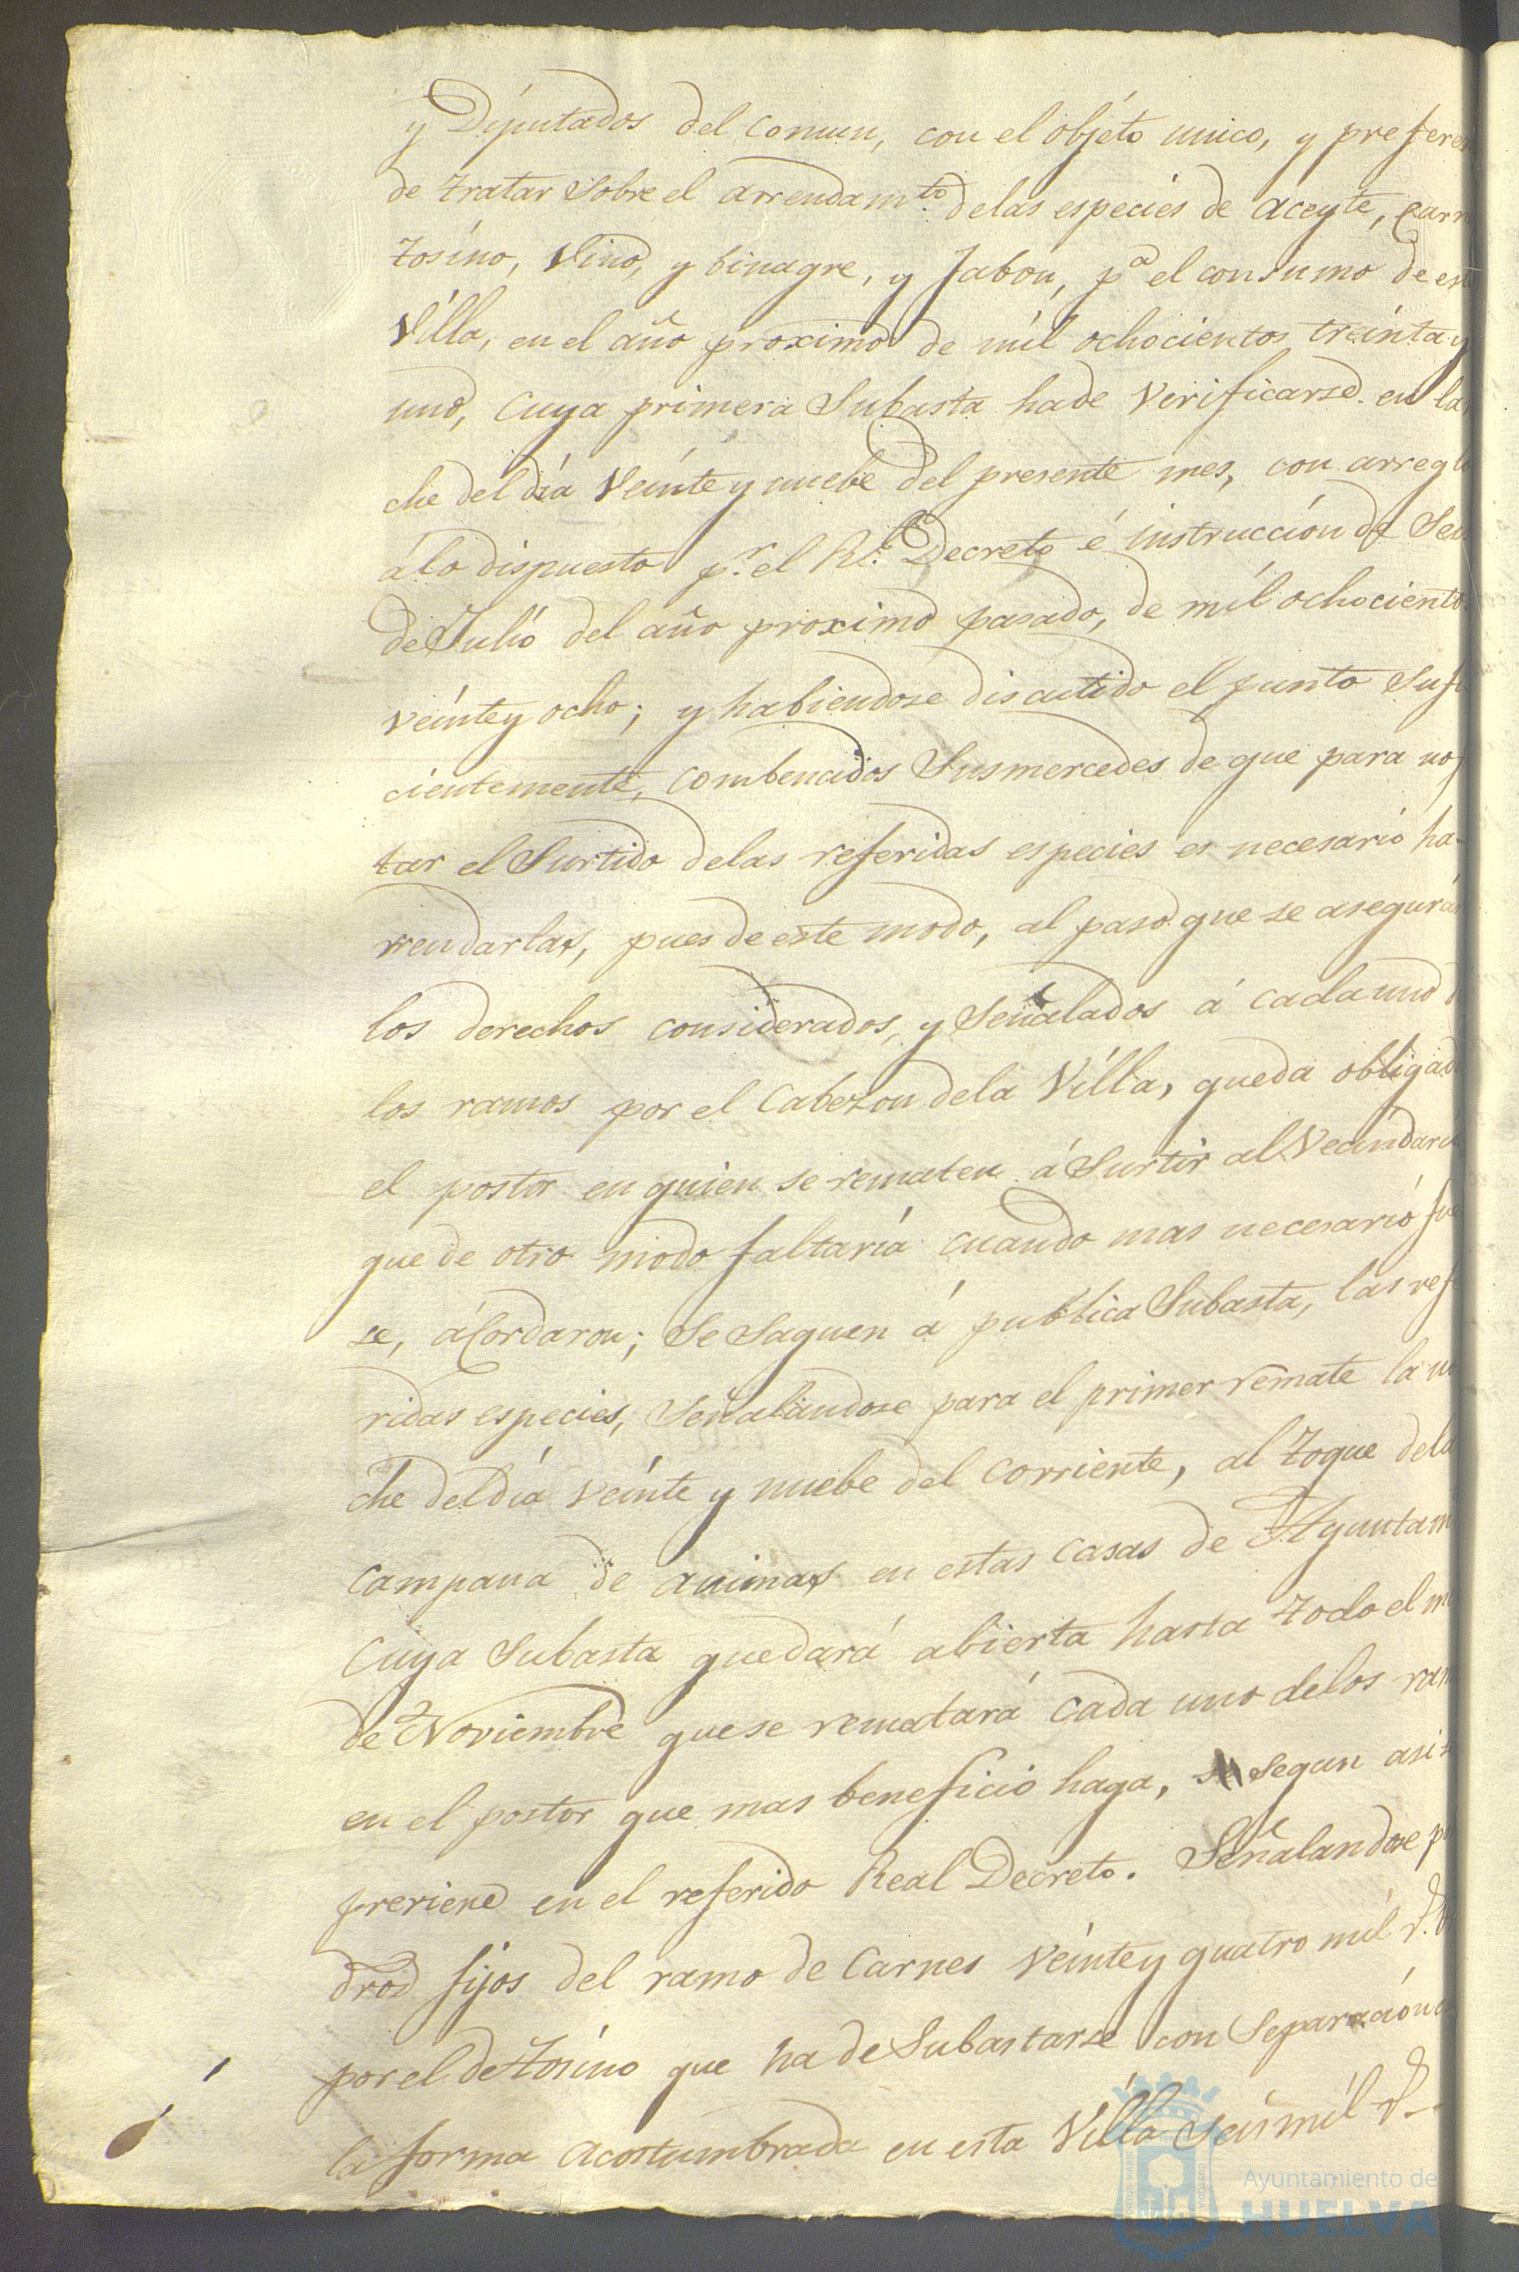 y Diputados del comun, con el objeto unico, y prefere
de tratar sobre el arrendam.to delas especies de aceyte, carn
tosino, Vino, y binagre, y Jabon, p.a el consumo de es
Villa, en el año proximo de mil ochocientos treinta y
uno, cuya primera Subasta hade Verificarse en la
che del dia Veinte y nuebe del presente mes, con arreglo
álo dispuesto p.r el Rl. Decreto é instrucción de Sei
de Julio del año proximo pasado, de mil ochociento
veinte y ocho; y habiendose discutido el punto Sufi
cientemente, combencidos Susmercedes de que para no f
tar el Surtido delas referidas especies es necesario ha-
rrendarlas, pues de este modo, al paso que se asegurá
los derechos considerados, y Señalados á cada uno d
los ramos por el Cabezon dela Villa, queda obligad
el postor en quien se rematen á Surtir al Vecindari
que de otro modo faltaría cuando mas necesario fue
se, ácordaron; se Saquen á publica Subasta, las refe
ridas especies, Señalandose para el primer remate la no
che del dia veinte y nuebe del corriente, al toque dela
campana de animas en estas casas de Ayuntam
cuya Subasta quedará abierta hasta todo el m
de Noviembre que se rematará cada uno delos ram
en el postor que mas beneficio haga, Segun asi s
previene en el referido Real Decreto. Señalandose p
dros fijos del ramo de Carnes Veinte y quatro mil r.s
por el de tosino que ha de Subastarse con Separación
la forma acostumbrada en esta Villa Seis mil r.s
Ayuntamiento de
HUELVA